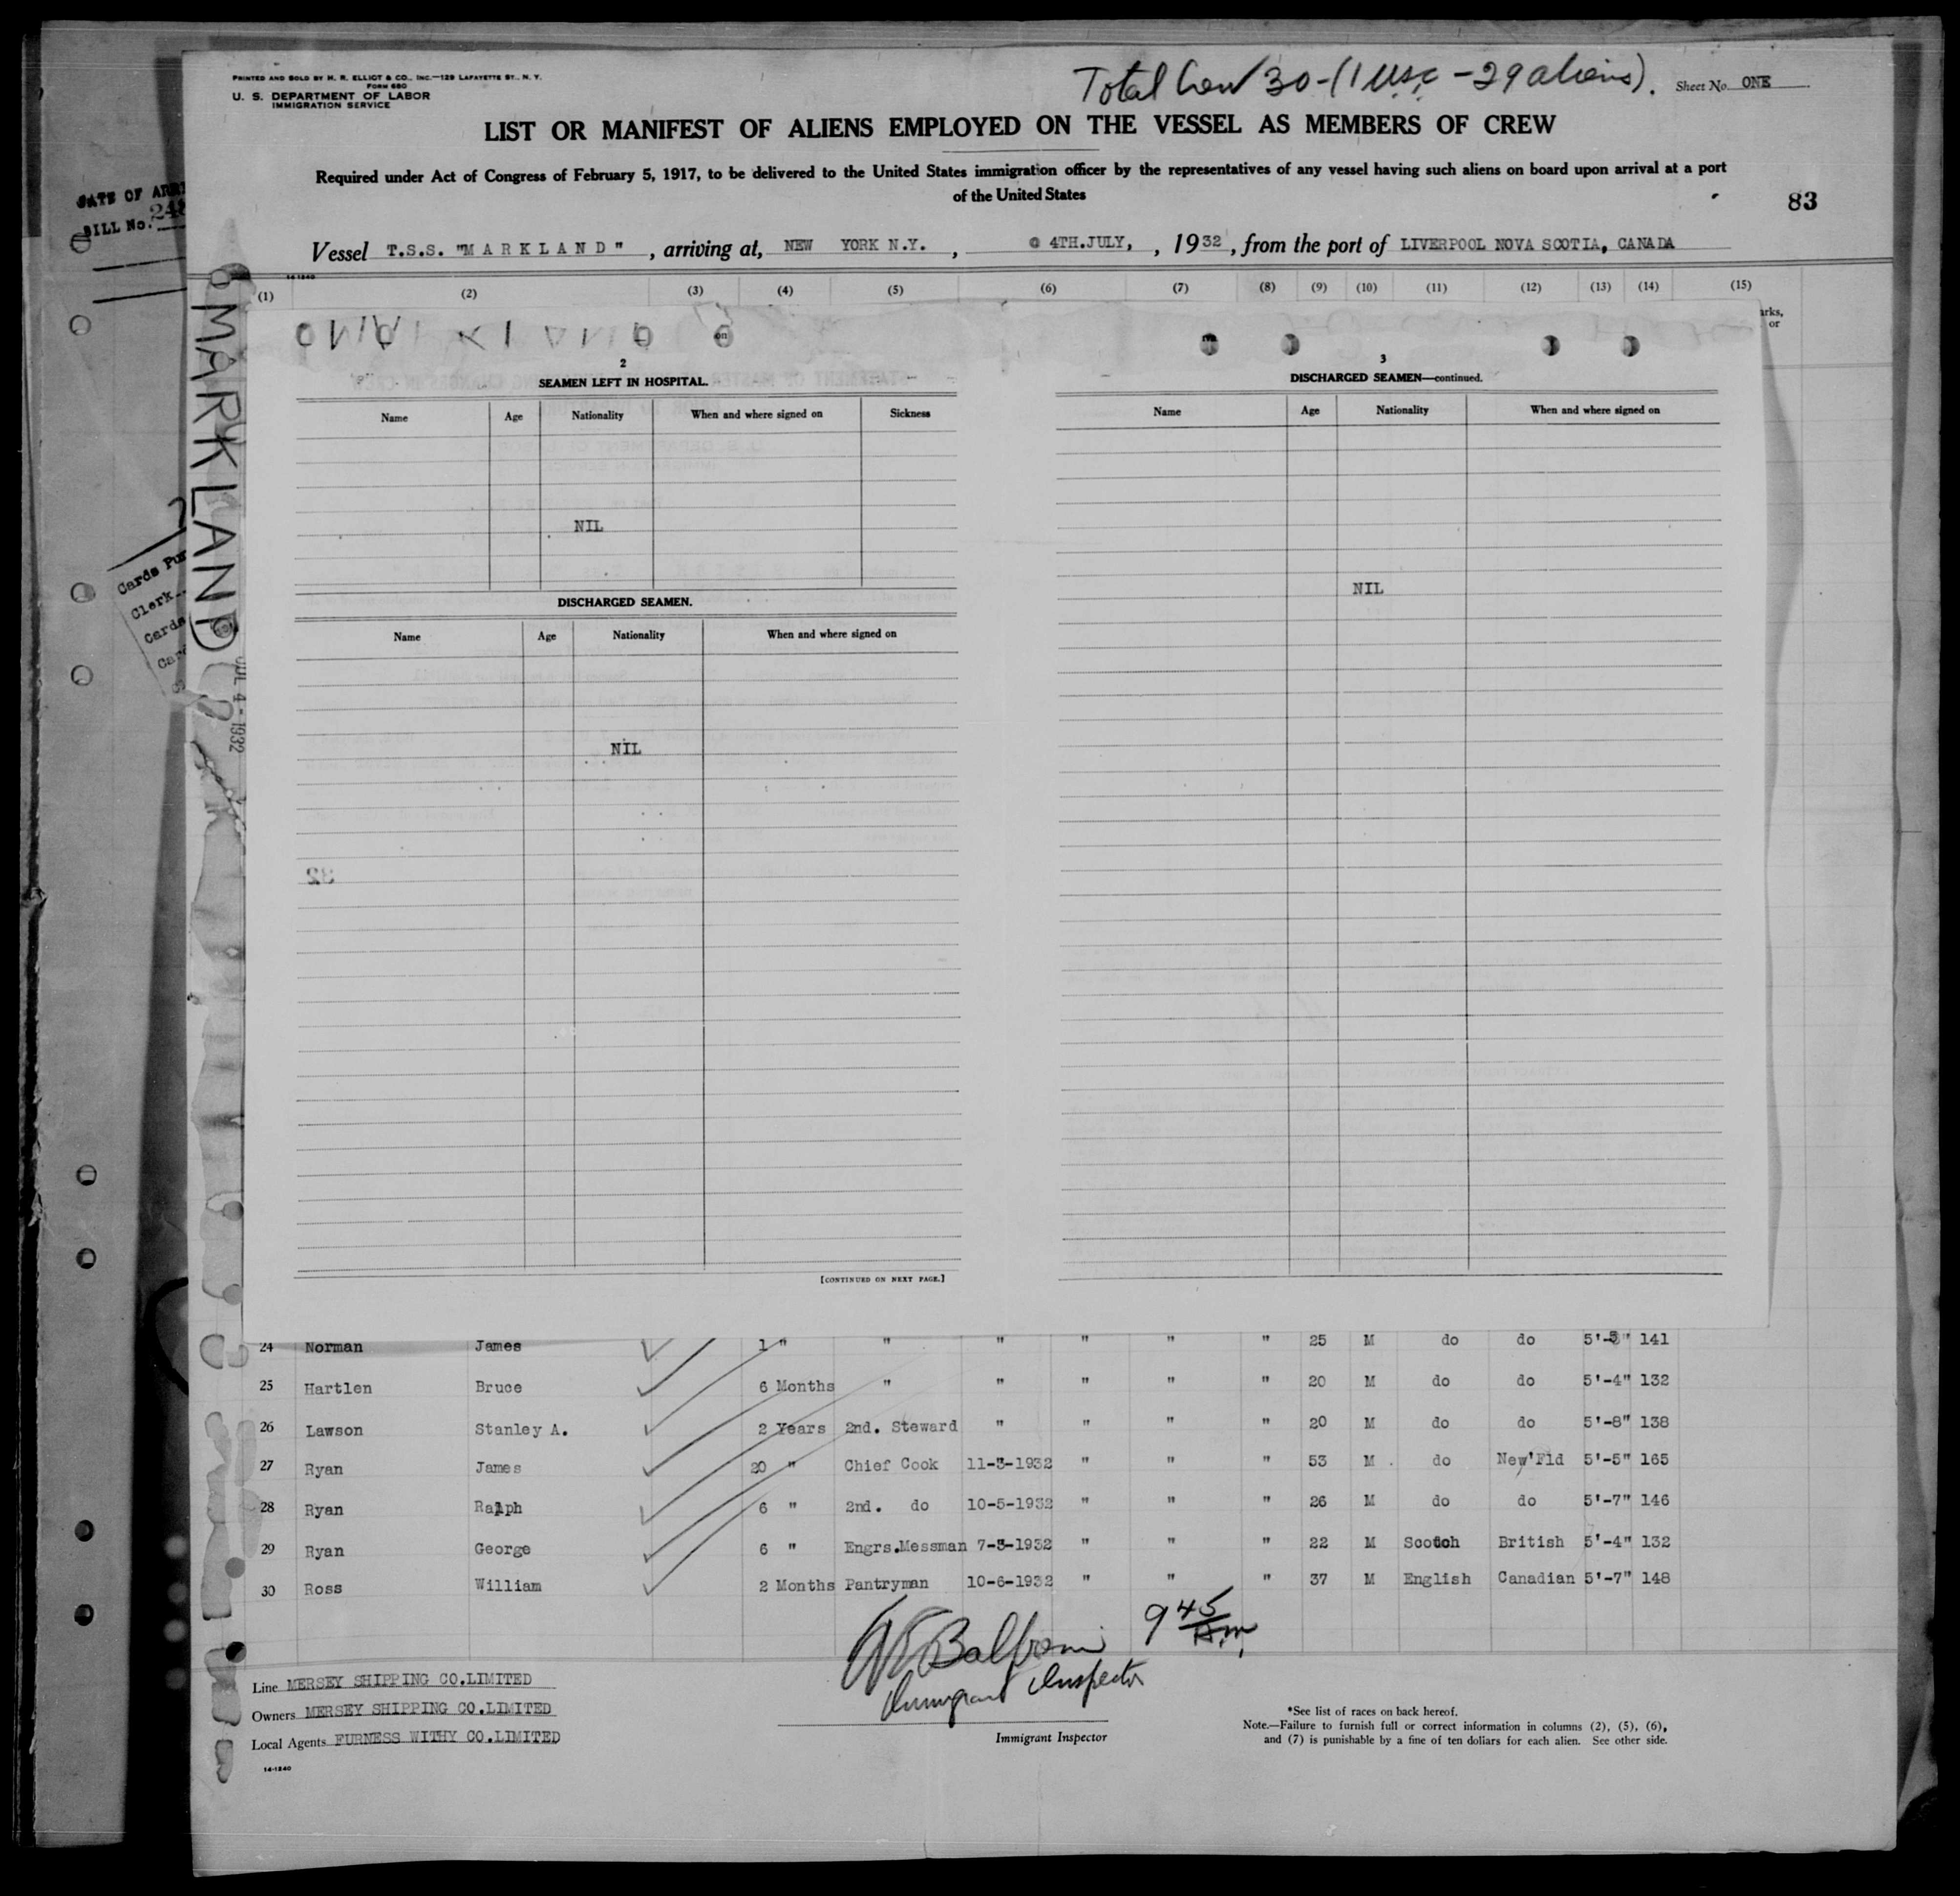 PRINTED AND SOLD BY H. R. ELLIOT & CO., INC.—129 LAFAYETTE ST., N. Y.
FORM 680
U. S. DEPARTMENT OF LABOR
IMMIGRATION SERVICE
Total Crew 30-(1 USC - 29 aliens).
Sheet No. ONE
LIST OR MANIFEST OF ALIENS EMPLOYED ON THE VESSEL AS MEMBERS OF CREW
Required under Act of Congress of February 5, 1917, to be delivered to the United States immigration officer by the representatives of any vessel having such aliens on board upon arrival at a port
of the United States
83
DATE OF ARRI
BILL No. 248
Vessel T.S.S. "MARKLAND", arriving at, NEW YORK N.Y., @ 4TH.JULY, , 1932, from the port of LIVERPOOL NOVA SCOTIA, CANADA
14-1240
(1) (2) (3) (4) (5) (6) (7) (8) (9) (10) (11) (12) (13) (14) (15)
arks,
or
MARKLAND
JUL 4 - 1932
Cards Pu
Clerk
Cards
Car
2
SEAMEN LEFT IN HOSPITAL.
Name Age Nationality When and where signed on Sickness
NIL
DISCHARGED SEAMEN.
Name Age Nationality When and where signed on
NIL
32
[CONTINUED ON NEXT PAGE.]
3
DISCHARGED SEAMEN—continued.
Name Age Nationality When and where signed on
NIL
24 Norman James 1 " " " " " " 25 M do do 5'-5" 141
25 Hartlen Bruce 6 Months " " " " " 20 M do do 5'-4" 132
26 Lawson Stanley A. 2 Years 2nd. Steward " " " " 20 M do do 5'-8" 138
27 Ryan James 20 " Chief Cook 11-3-1932 " " " 53 M do New'Fld 5'-5" 165
28 Ryan Ralph 6 " 2nd. do 10-5-1932 " " " 26 M do do 5'-7" 146
29 Ryan George 6 " Engrs.Messman 7-3-1932 " " " 22 M Scotch British 5'-4" 132
30 Ross William 2 Months Pantryman 10-6-1932 " " " 37 M English Canadian 5'-7" 148
9 45 A.m.
Immigrant Inspector
Line MERSEY SHIPPING CO.LIMITED
Owners MERSEY SHIPPING CO.LIMITED
Local Agents FURNESS WITHY CO.LIMITED
14-1240
Immigrant Inspector
*See list of races on back hereof.
Note.—Failure to furnish full or correct information in columns (2), (5), (6),
and (7) is punishable by a fine of ten dollars for each alien. See other side.